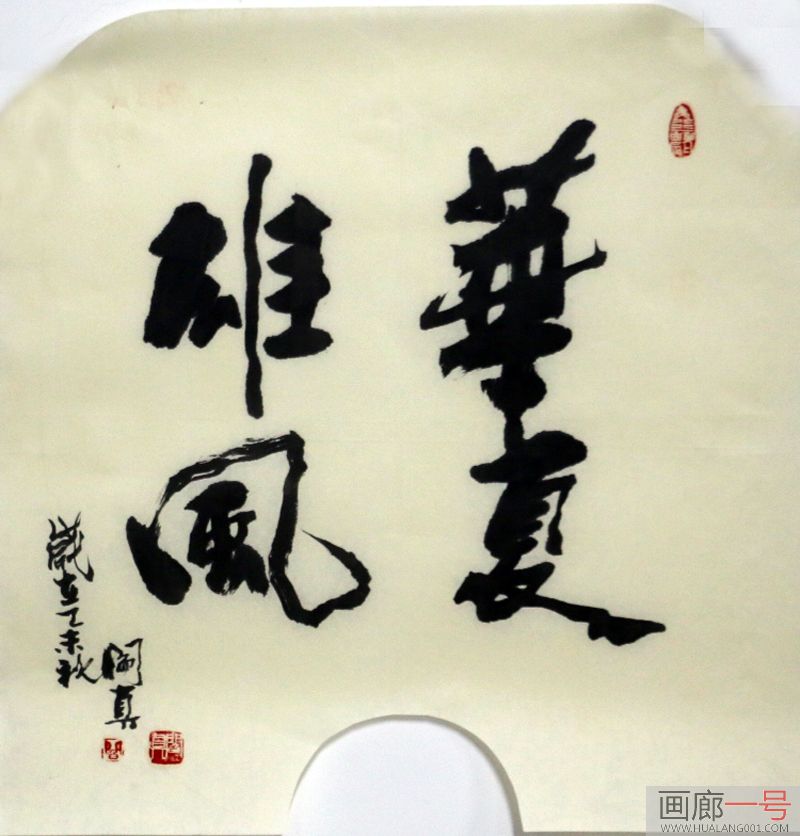 華夏
雄風
歲在乙未秋
真
画廊一号
WWW.HUALANG001.COM